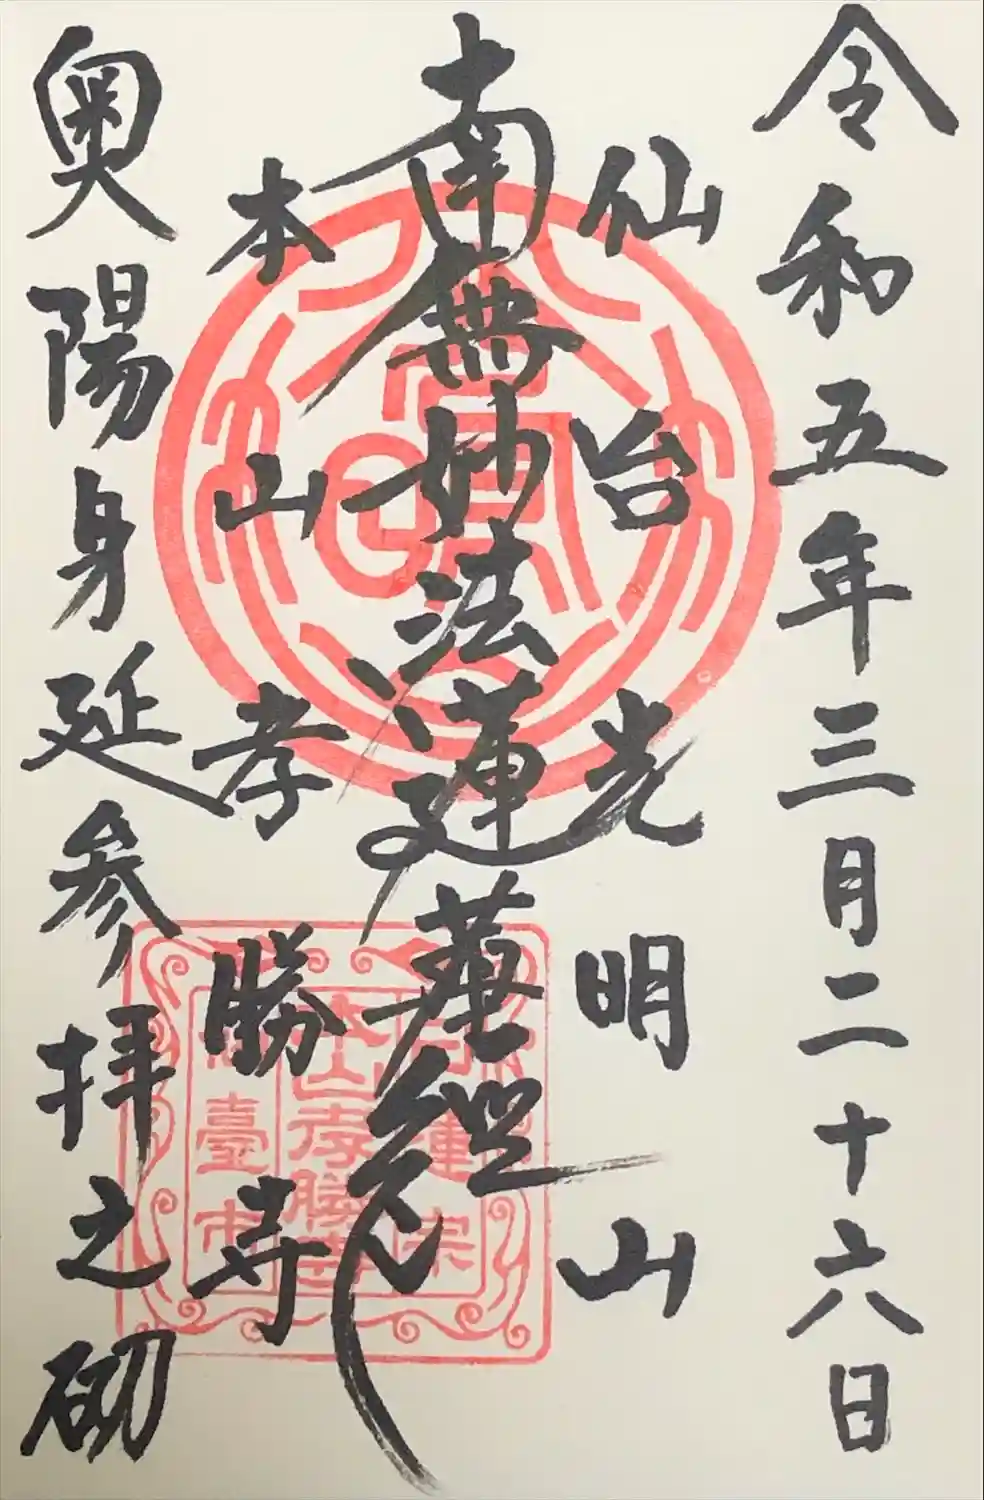 令和五年三月二十六日
仙台光明山
南無妙法蓮華経
本山孝勝寺
奥陽身延参拝之砌
日蓮宗
本山孝勝寺
仙臺市